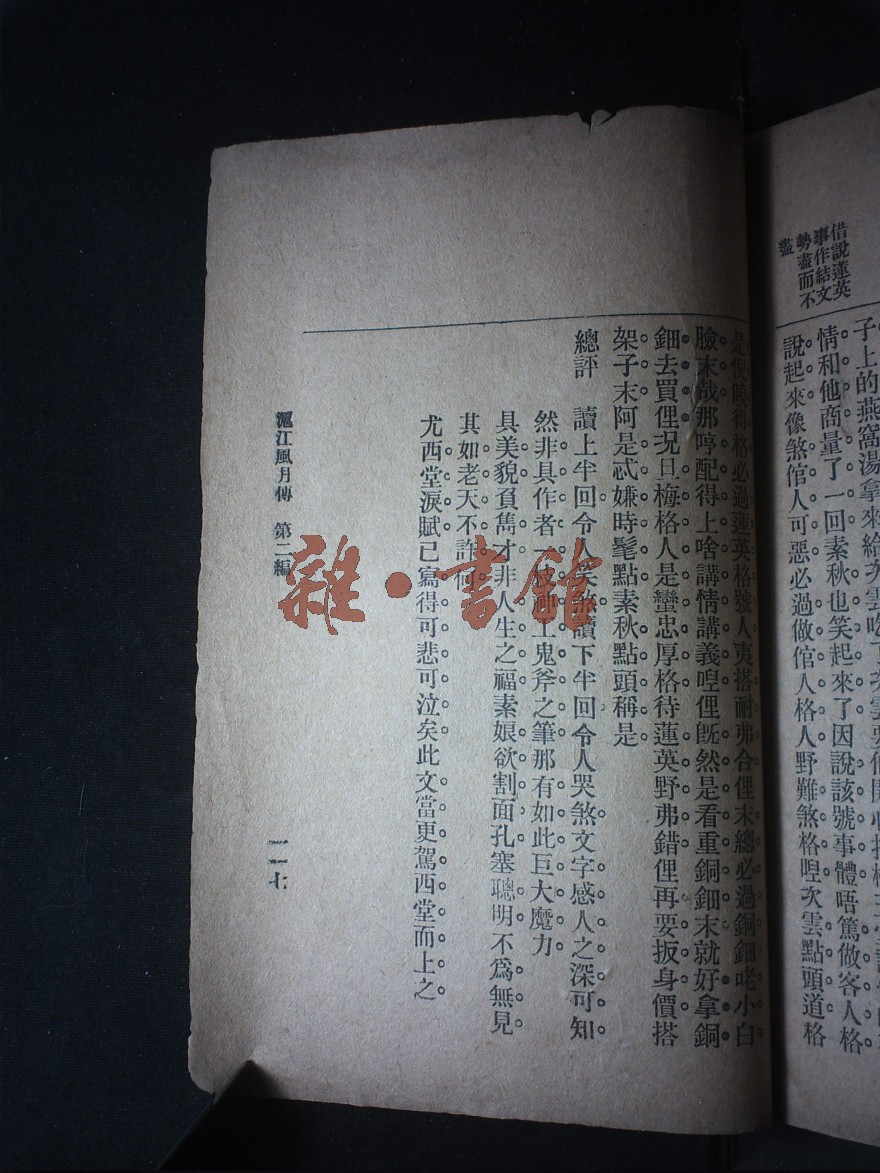 借說蓮英
事作結文
勢盡而不
盡
子上的燕窩湯拿來給次雲吃了次雲要他開心
情和他商量了一回素秋也笑起來了因說該號事體唔篤做客人格
說起來像煞倌人可惡必過做倌人格人野難煞格嘥次雲點頭道格
得格必過蓮英格號人夷搭耐弗合俚末總必過銅鈿咾小白
臉末哉那哼配得上啥講情講義嘥俚旣然是看重銅鈿末就好拿銅
鈿去買俚况且梅格人是蠻忠厚格待蓮英野弗錯俚再要扳身價搭
架子末阿是忒嫌時髦點素秋點頭稱是
總評 讀上半回令人笑煞讀下半回令人哭煞文字感人之深可知
然非具作者一枝神工鬼斧之筆那有如此巨大魔力
具美貌負雋才非人生之福素娘欲割面孔塞聰明不爲無見
其如老天不許何
尤西堂淚賦已寫得可悲可泣矣此文當更駕西堂而上之
滬江風月傳 第二編
一一七
雜·書館